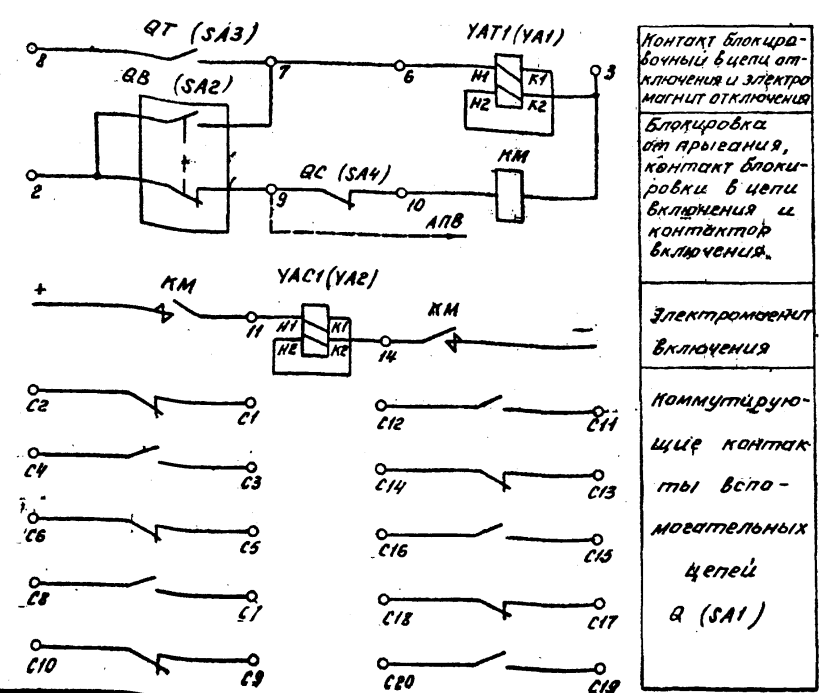 QT (SA3)
YAT1(YA1)
8
7
6
H1
K1
H2
K2
3
QB (SA2)
KM
2
9
QC (SA4)
10
АПВ
+
KM
YAC1(YA2)
KM
11
H1
K1
H2
K2
14
−
C2
C1
C12
C11
C4
C3
C14
C13
C6
C5
C16
C15
C8
C7
C18
C17
C10
C9
C20
C19
Контакт блокиро-
вочный в цепи от-
ключения и электро
магнит отключения
Блокировка
от прыгания,
контакт блоки-
ровки в цепи
включения и
контактор
включения.
Электромагнит
включения
Коммутирую-
щие контак
ты вспо-
могательных
цепей
Q (SA1)